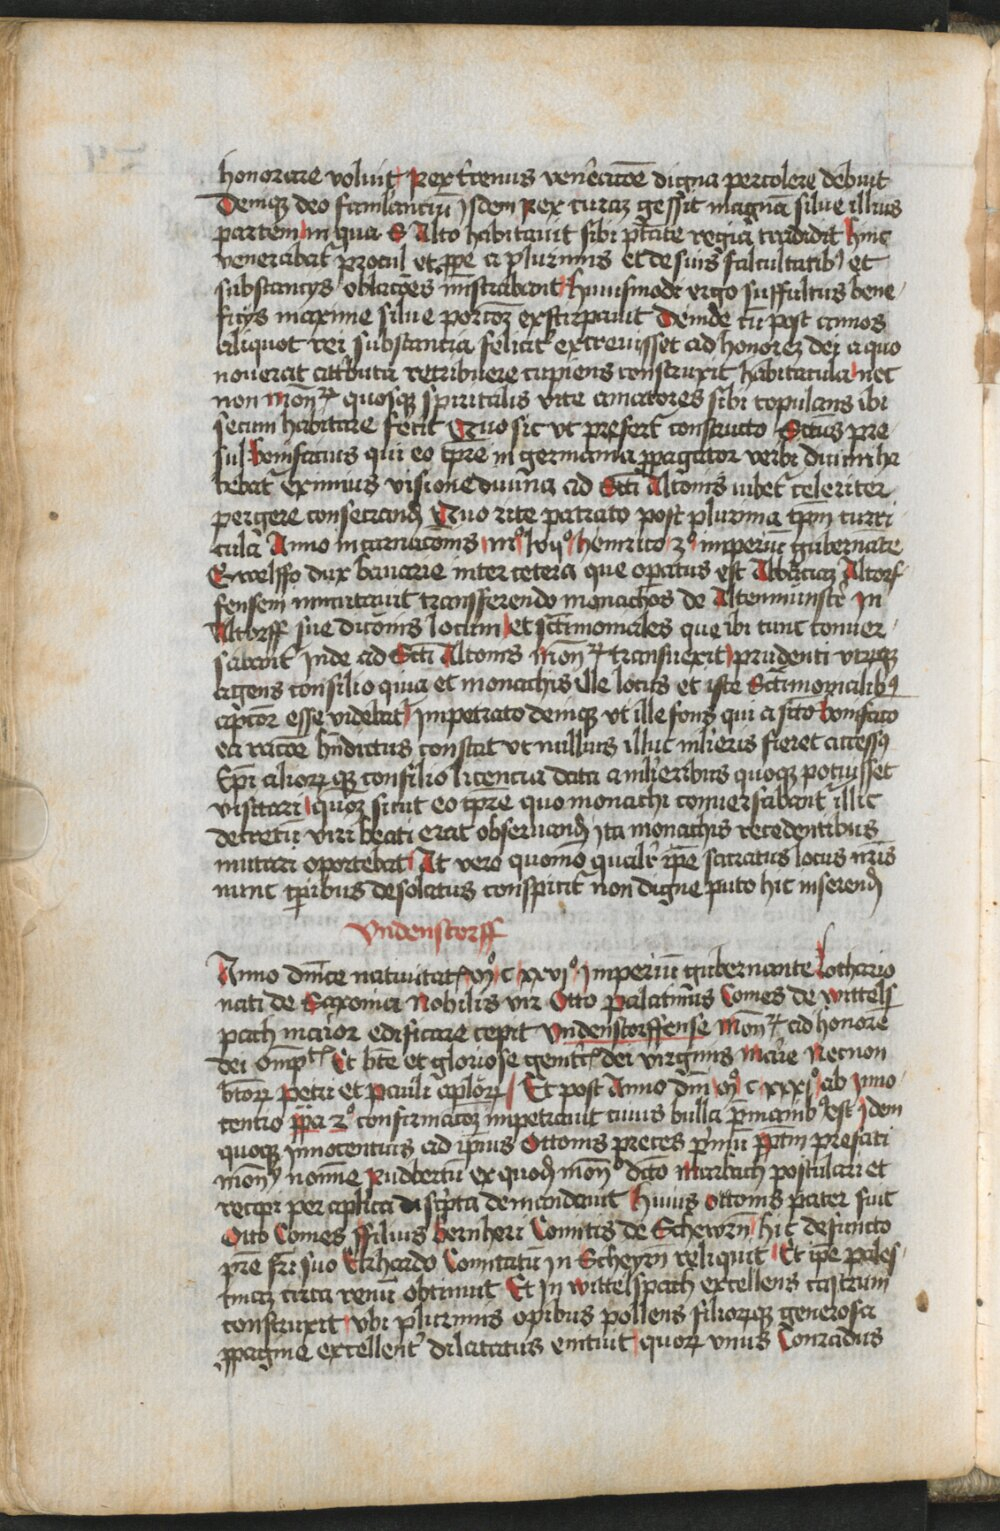 honorare voluit Rex Etenus ven̄eracōe digna percolere debuit
Deniqꝫ deo famlanciū ysdem Rex curaꝫ gessit magnā silue illius
partem in qua S Alto habitauit sibi ptāte regia tradidit hinc
venerabat᷑ procul et ꝓpe a plurimis et de suis facultatibꝰ et
substancijs oblacōes mīstrabant huiusmodi ergo suffultus bene
ficijs maxime silue porcōeꝫ exstirpauit Deinde cū post annos
aliquot rei substancia felicit᷑ excreuisset ad honoreꝫ dei a quo
nouerat attributa retribuere cupiens construxit habitacula nec
non mon quosqꝫ spiritalis vite amatores sibi copulans ibi
secum habitare fecit Quo sic vt prefert᷑ constructo Sctūs pre
sul bonifacius qui eo tpre in germania ꝓpagator verbi diuini ha
bebat᷑ eximius visione diuina ad Scti Altonis iubet᷑ celeriter
pergere consecrand Quo rite patrato post plurima tpm curri
cula Anno incarnacōnis mo lvijo heinrico 2o imperiū gubernāte
Et welffo dux bauarie inter cetera que opatus est Abbaciaꝫ Altorf
fensem mutauit transferendo monachos de Altenmunster In
Altorff sue dicōnis locum et sctimoniales que ibi tunc conuer
sabant᷑ Inde ad Scti Altonis mon transuexit prudenti vtiqꝫ
agens consilio quia et monachis ille locus et iste Sctimonialibꝰ
apcior esse videbat᷑ Impetrato deniqꝫ vt ille fons qui a scto bonifacio
ea racōe bn̄dictus constat vt nullius illuc mlieris fieret accessꝰ
Epi aliorꝝqꝫ consilio licencia data a mlieribus quoqꝫ potuisset
visitari quoꝫ sicut eo tpre quo monachi conuersabant᷑ illic
decretū viri beati erat obseruand Ita monachis recedentibus
mutari oportebat At vero quomo qualr ipe sacratus locus nris
nunc tpribus desolatus conspicit᷑ non digne puto hic inserend
Vndenstorff
Anno dnice natiuitat mo c xxvjo Imperiū gubernante Lothario
nati de Saxonia Nobilis vir Otto palatinus Comes de wittels
pach maior edificare cepit Vndenstorffense Mon ad honorē
dei omp Et bte et gloriose genitc dei virginis marie Necnon
btorꝝ petri et pauli aplorꝝ Et post Anno dni mo c xxxjo ab Inno
centio ppa 2o confirmacōeꝫ impetrauit cuius bulla p manibꝰ est Idem
quoqꝫ Innocentius ad ipius Ottonis preces primū ppt̄m prefati
mon noīe Rudbertū ex quod mon dicto Marbach postulari et
recipi per aplica scripta demandauit Huius ottonis pater fuit
Otto Comes ffilius bernheri Comitis de Scheyrn hic defuncto
pre fri suo Ekhardo Comitatū in Scheyrn reliquit Et ipe pales
tinaꝫ circa renū obtinuit Et In wittelspach excellens castrum
construxit vbi plurimis opibus pollens filiorꝝqꝫ generosa
ꝓpagine excellent᷑ dilatatus enituit quorꝝ vnus Conradus